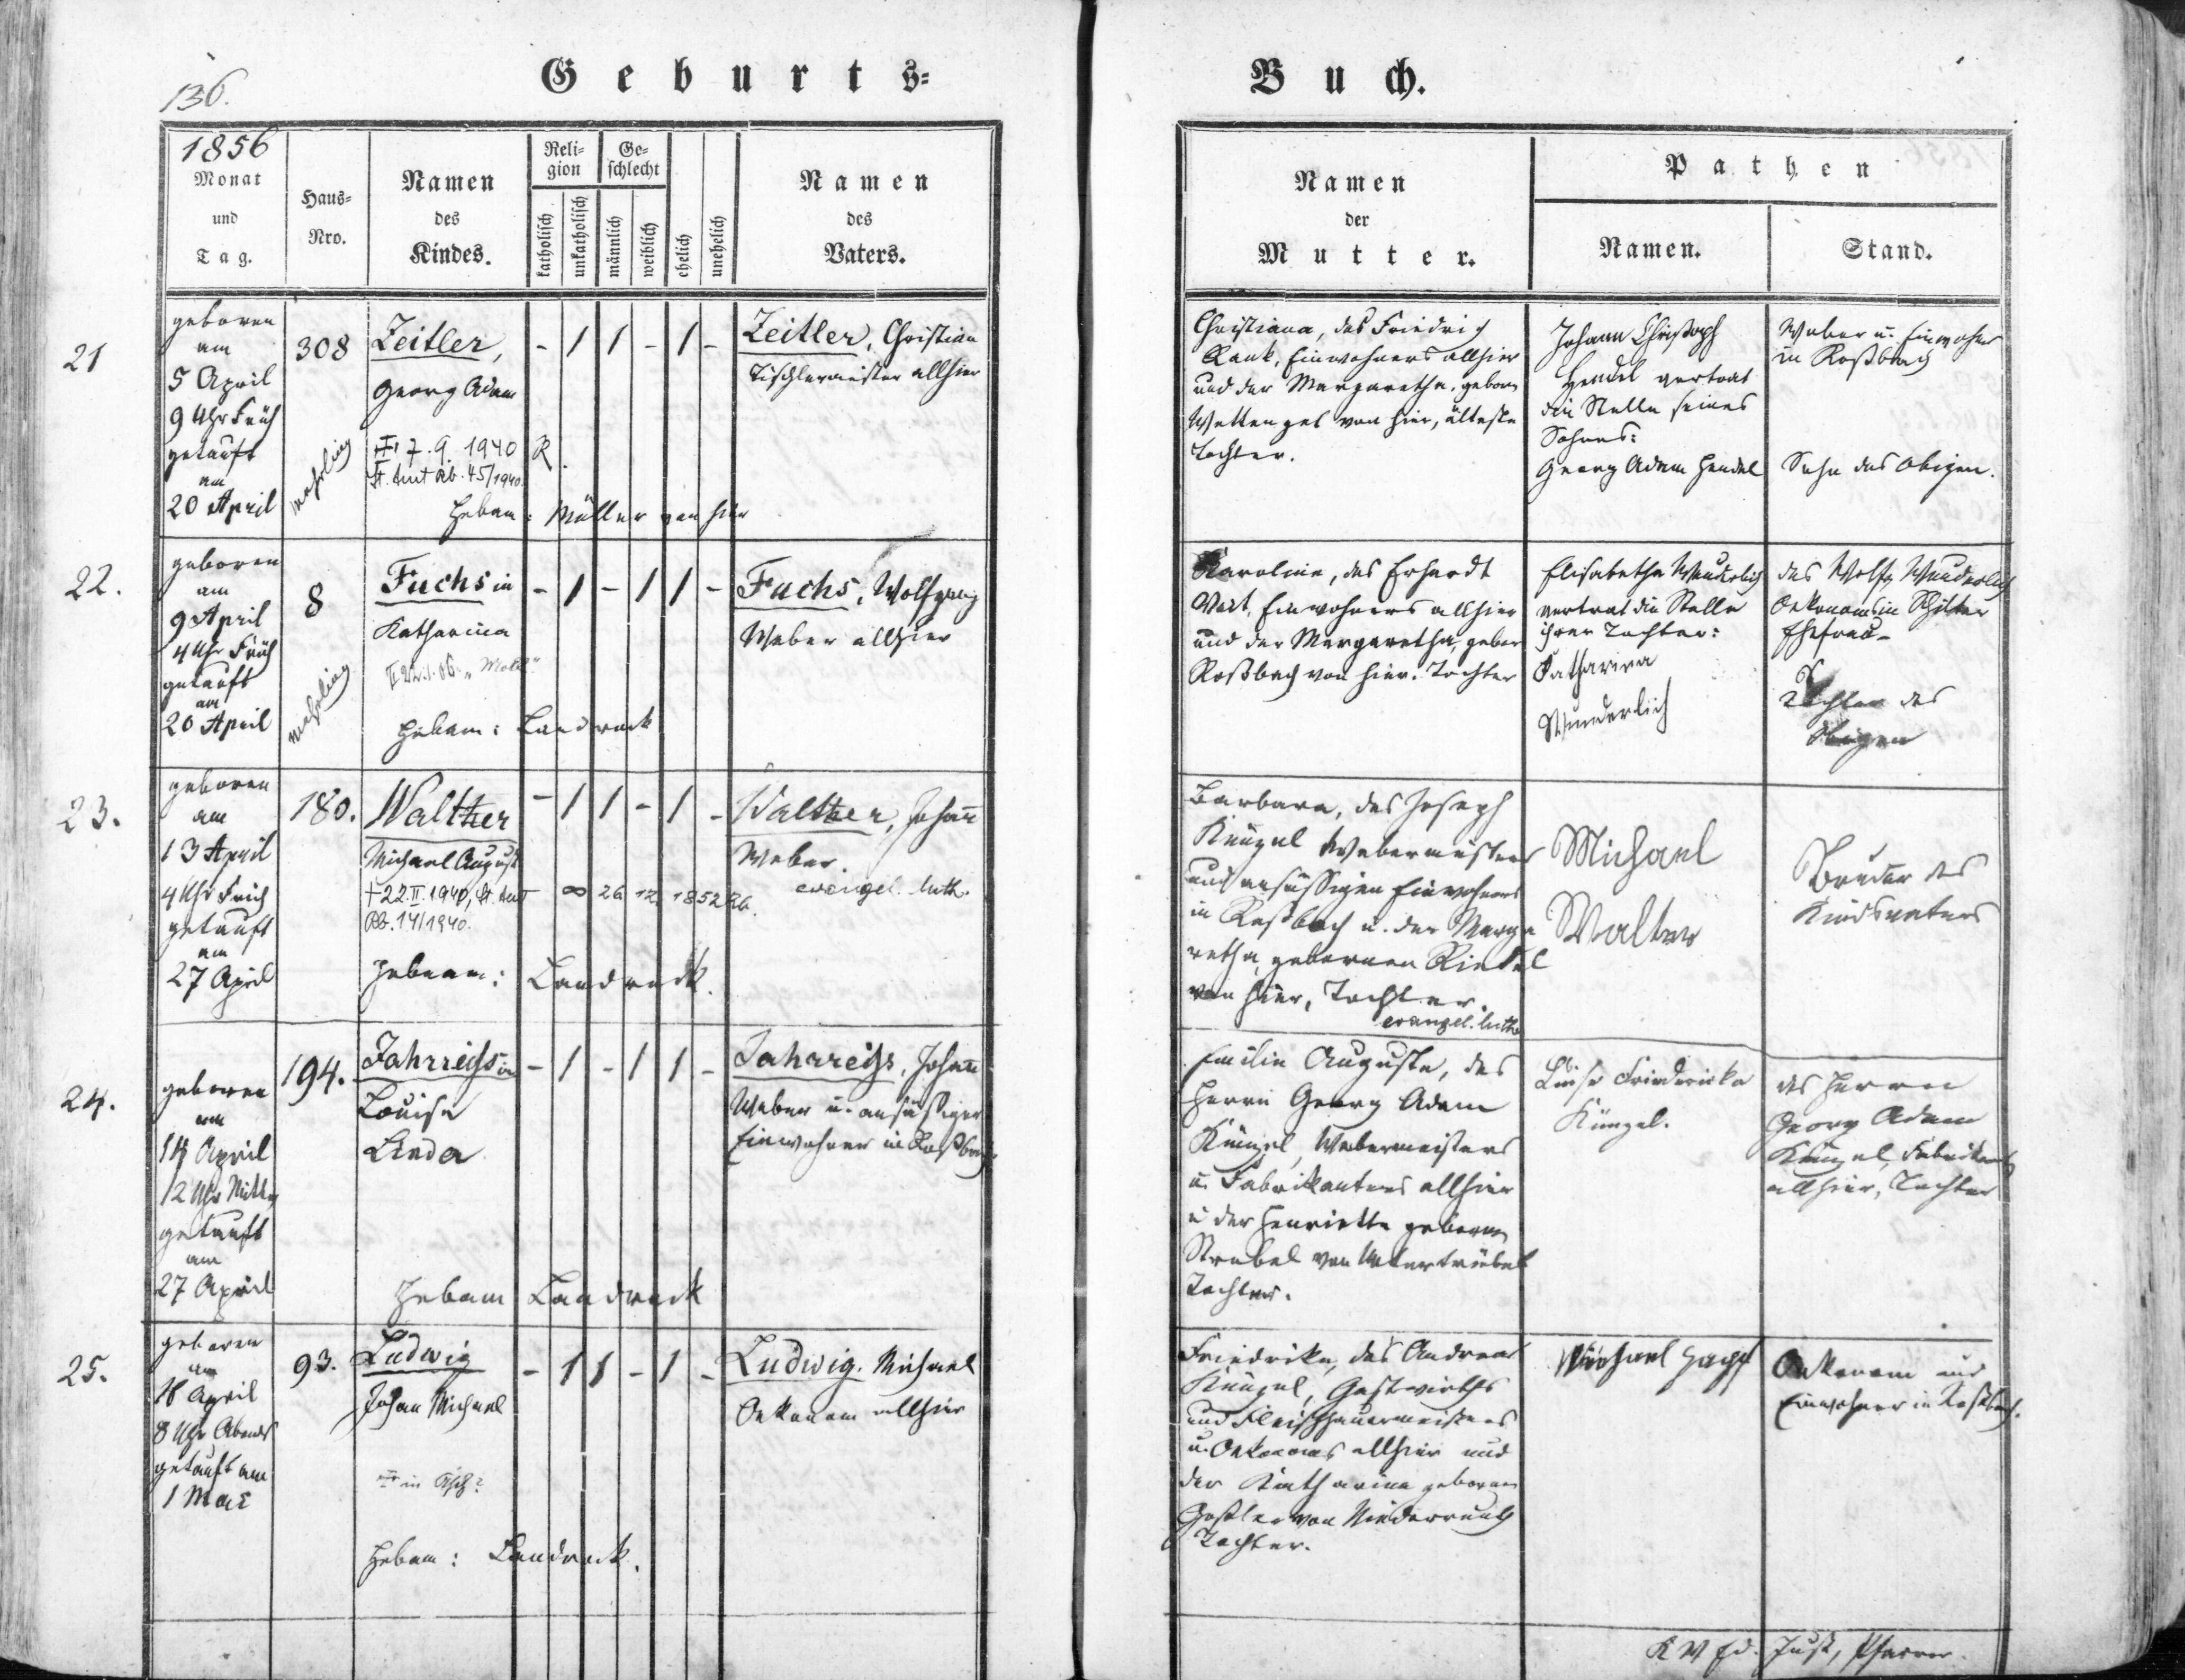 136.
Geburts=
1856
Monat
und
Tag.
Haus=
Nro.
Namen
des
Kindes.
Reli=
gion
katholisch
unkatholisch
Ge=
schlecht
männlich
weiblich
ehelich
unehelich
Namen
des
Vaters.
21
geboren
am
5 April
9 Uhr Früh
getauft
am
20 April
308
Zeitler,
Georg Adam
7. 9. 1940 R.
St. Amt Rb. 45/1940.
Hebam: Müller von hier
- 1 1 - 1 -
Zeitler, Christian
Tischlermeister allhier
22.
geboren
am
9 April
4 Uhr Früh
getauft
am
20 April
8
Fuchsin
Katharina
Hebam: Landrock
- 1 - 1 1 -
Fuchs, Wolfgang
Weber allhier
23.
geboren
am
13 April
4 Uhr Früh
getauft
am
27 April
180.
Walther
Michael August
+ 22.II.1940, St. Amt
Rb. 14/1940.
∞ 26 12 1852 Rb.
Hebam: Landrock.
- 1 1 - 1 -
Walther, Johann
Weber.
evangel. luth.
24.
geboren
am
14 April
12 Uhr Mittag
getauft
am
27 April
194.
Jahrreißin
Louise
Linda
Hebam Landrock
- 1 - 1 1 -
Jahrreiß, Johann
Weber u. ansäßiger
Einwohner in Roßbach
25.
geboren
am
18 April
8 Uhr Abends
getauft am
1 Mai
93.
Ludwig
Johan Michael
in Asch?
Hebam: Landrock.
- 1 1 - 1 -
Ludwig. Michael
Oekonom allhier
Buch.
Namen
der
Mutter.
Pathen
Namen.
Stand.
Christiana, des Friedrich
Rank, Einwohners allhier
und der Margaretha, geborn
Wettengel von hier, älteste
Tochter.
Johann Christoph
Hendel vertrat
die Stelle seines
Sohnes:
Georg Adam Hendel
Weber u. Einwohner
in Roßbach
Sohn des Obigen.
Karoline, des Erhardt
Einwohners allhier
und der Margaretha, gebor
Roßbach von hier. Tochter
Elisabetha Wunderlich
vertrat die Stelle
ihrer Tochter:
Katharina
Wunderlich
des Wolfg Wunderlich
Oekonoms in Schilter
Ehefrau
Tochter des
Obigen
Barbara, des Joseph
Künzel Webermeisters
und ansäßigen Einwohners
in Roßbach u. der Marga
retha, gebornen Riedel
von hier, Tochter.
evangel. luth.
Michael
Walther
Bruder des
Kindsvaters
Emilie Auguste, des
Herrn Georg Adam
Künzel, Webermeisters
u. Fabrikantens allhier
u der Henriette gebornen
Strobel von Untertriebel
Tochter.
Luise Friedericka
Künzel.
des Herrn
Georg Adam
Künzel, Fabrikants
allhier, Tochter
Friedrike, des Andreas
Künzel, Gastwirths
und Fleischhauermeisters
u. Oekonoms allhier und
der Katharina gebornen
von Niederreuth
Tochter.
Michael Hopf
Oekonom und
Einwohner in Roßbach.
Just, Pfarrer.